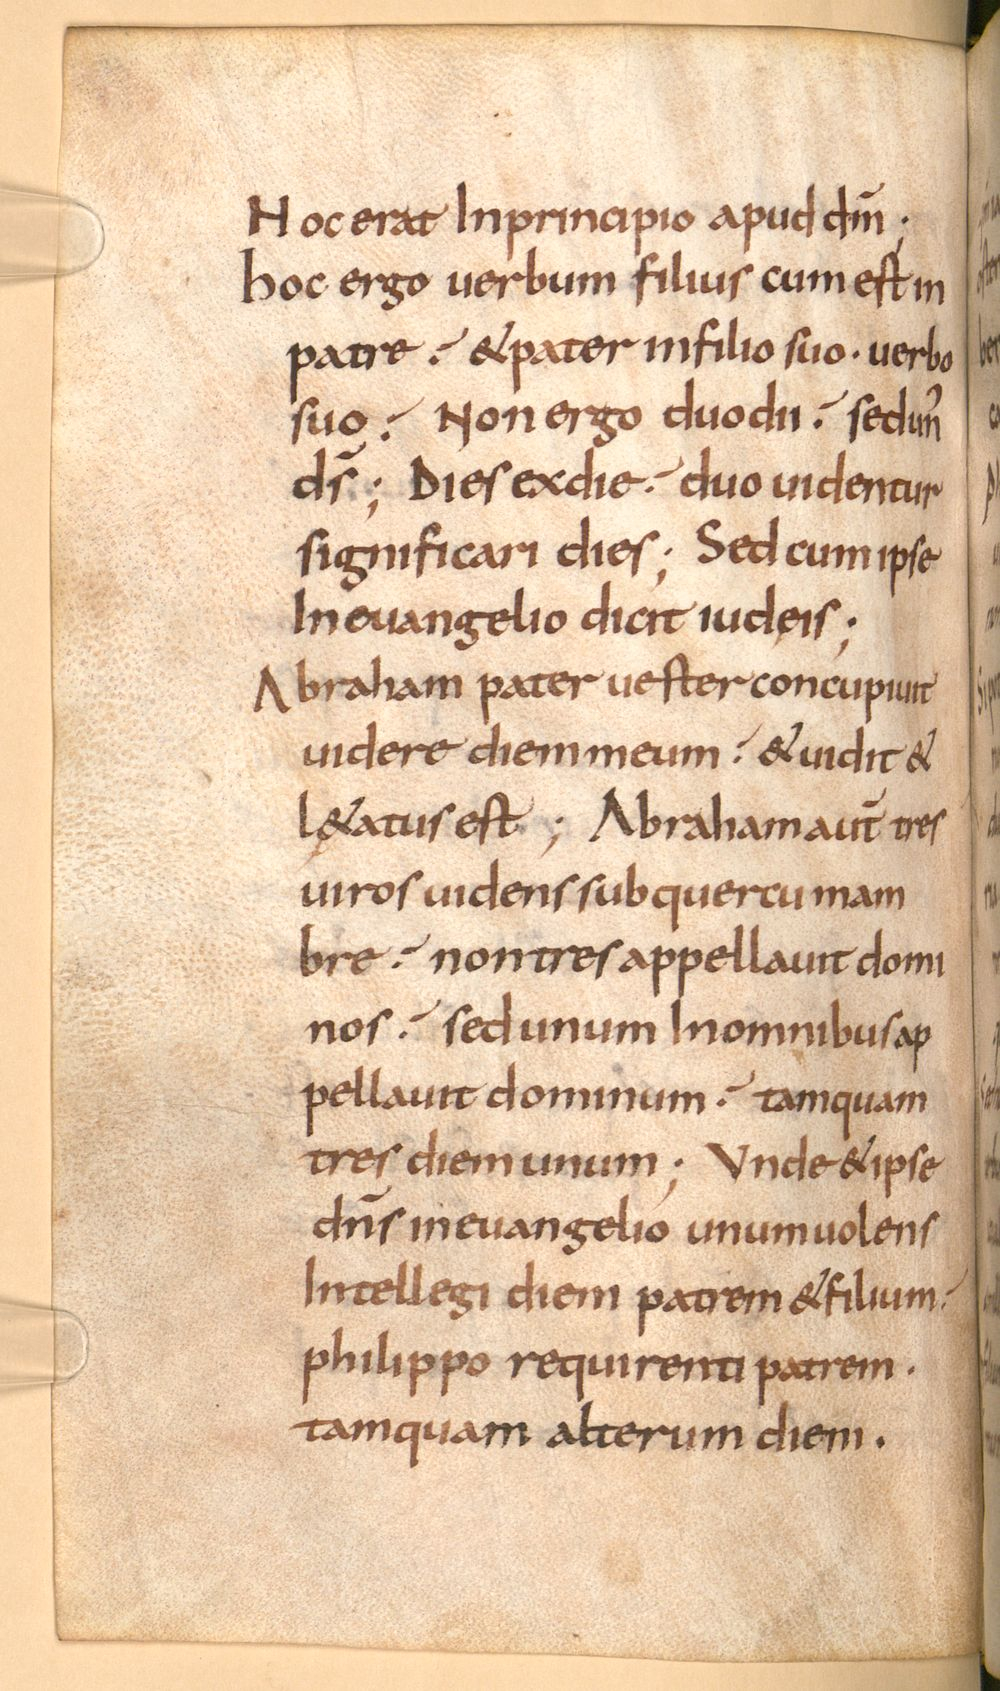 Hoc erat In principio apud dm̄ ;
hoc ergo uerbum filius cum est in
patre ·́ & pater in filio suo · uerbo
suo ·́ Non ergo duo dii ·́ sed un̉
ds̄ ; Dies ex die ·́ duo uidentur
significari dies ; Sed cum ipse
In euangelio dicit iudeis ;
Abraham pater uester concupiuit
uidere diem meum ·́ & uidit &
l&atus est ; Abraham aut̄ tres
uiros uidens sub quercu mam
bre ·́ non tres appellauit domi
nos ·́ sed unum In omnibus ap
pellauit dominum ·́ tamquam
tres diem unum ; Vnde & ipse
dn̄s in euangelio unum uolens
Intellegi diem patrem & filium ·́
philippo requirenti patrem ·
tamquam alterum diem ·